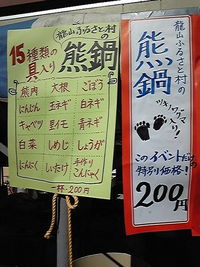 龍山ふるさと村の
15種類の
具入り
熊鍋
熊肉 大根 ごぼう
にんじん 玉ネギ 白ネギ
キャベツ 里イモ 青ネギ
白菜 しめじ しょうが
にんにく しいたけ 手作りこんにゃく
一杯・200円
龍山ふるさと村の
熊鍋
ツキノワグマ
入り!
このイベントだけの
特別価格!
200円